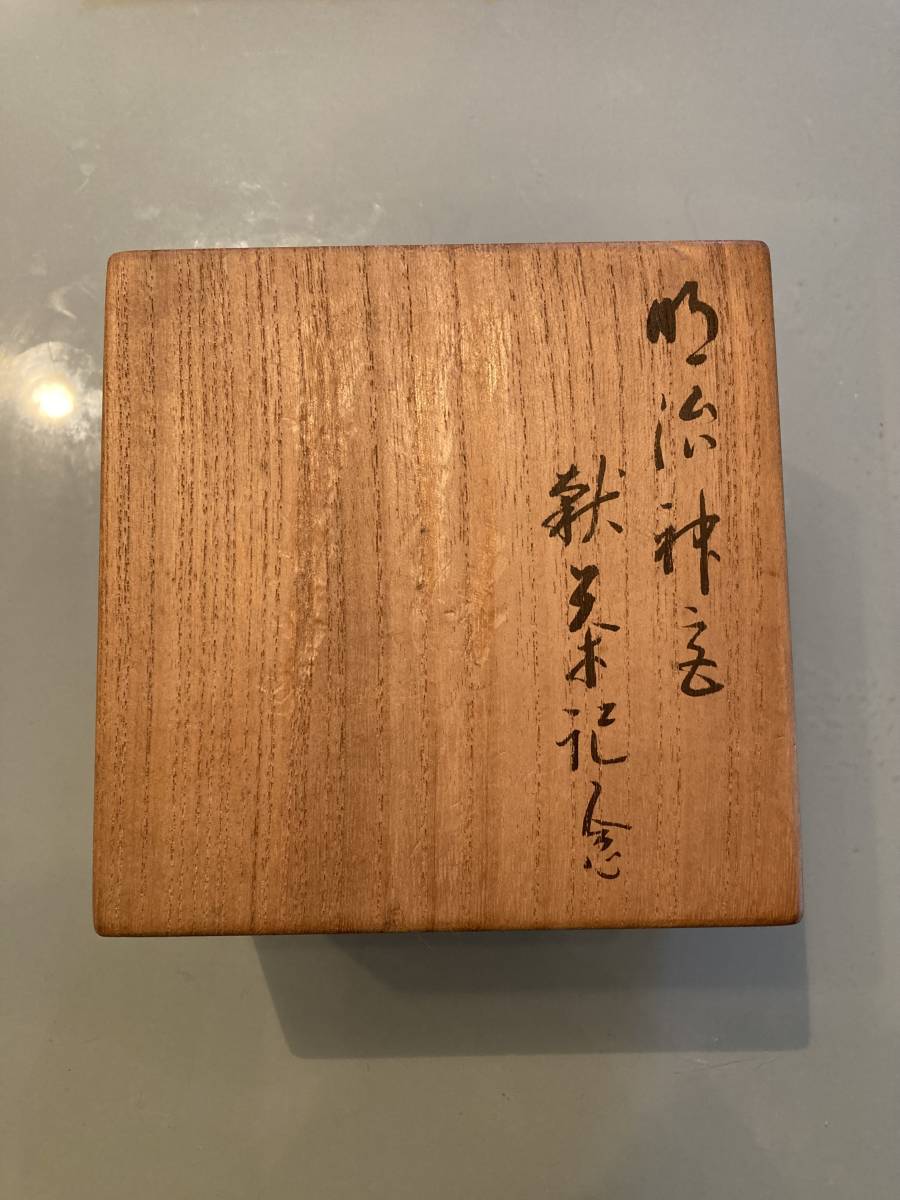 明治神宮
献茶記念